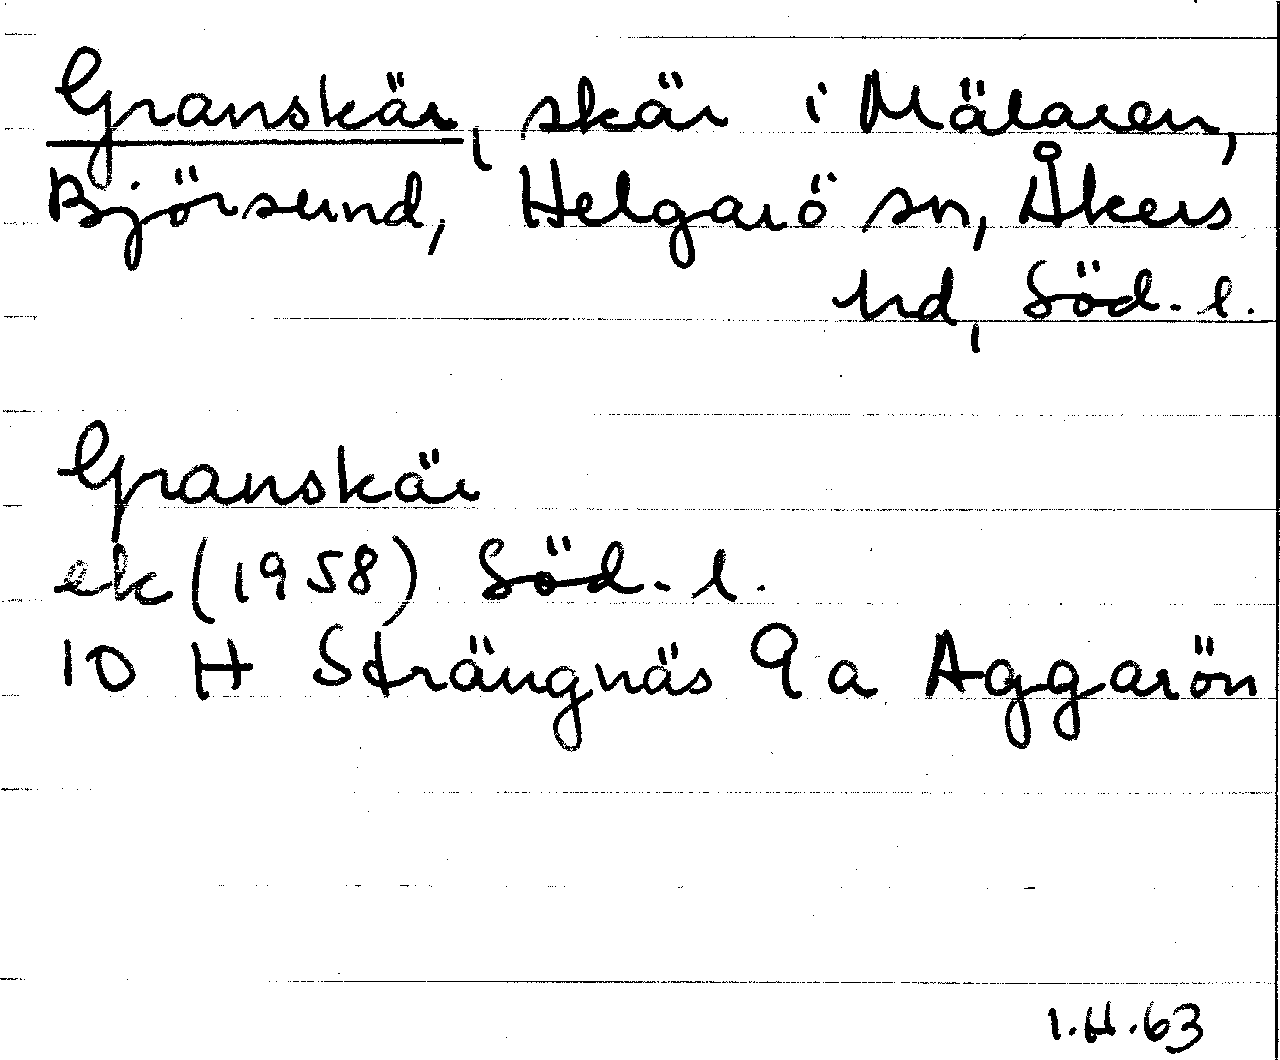 Granskär, skär i Mälaren,
Björsund, Helgarö sn, Åkers
hd, Söd. l.
Granskär
ek (1958) Söd. l.
10 H Strängnäs 9 a Aggarön
I.H.63